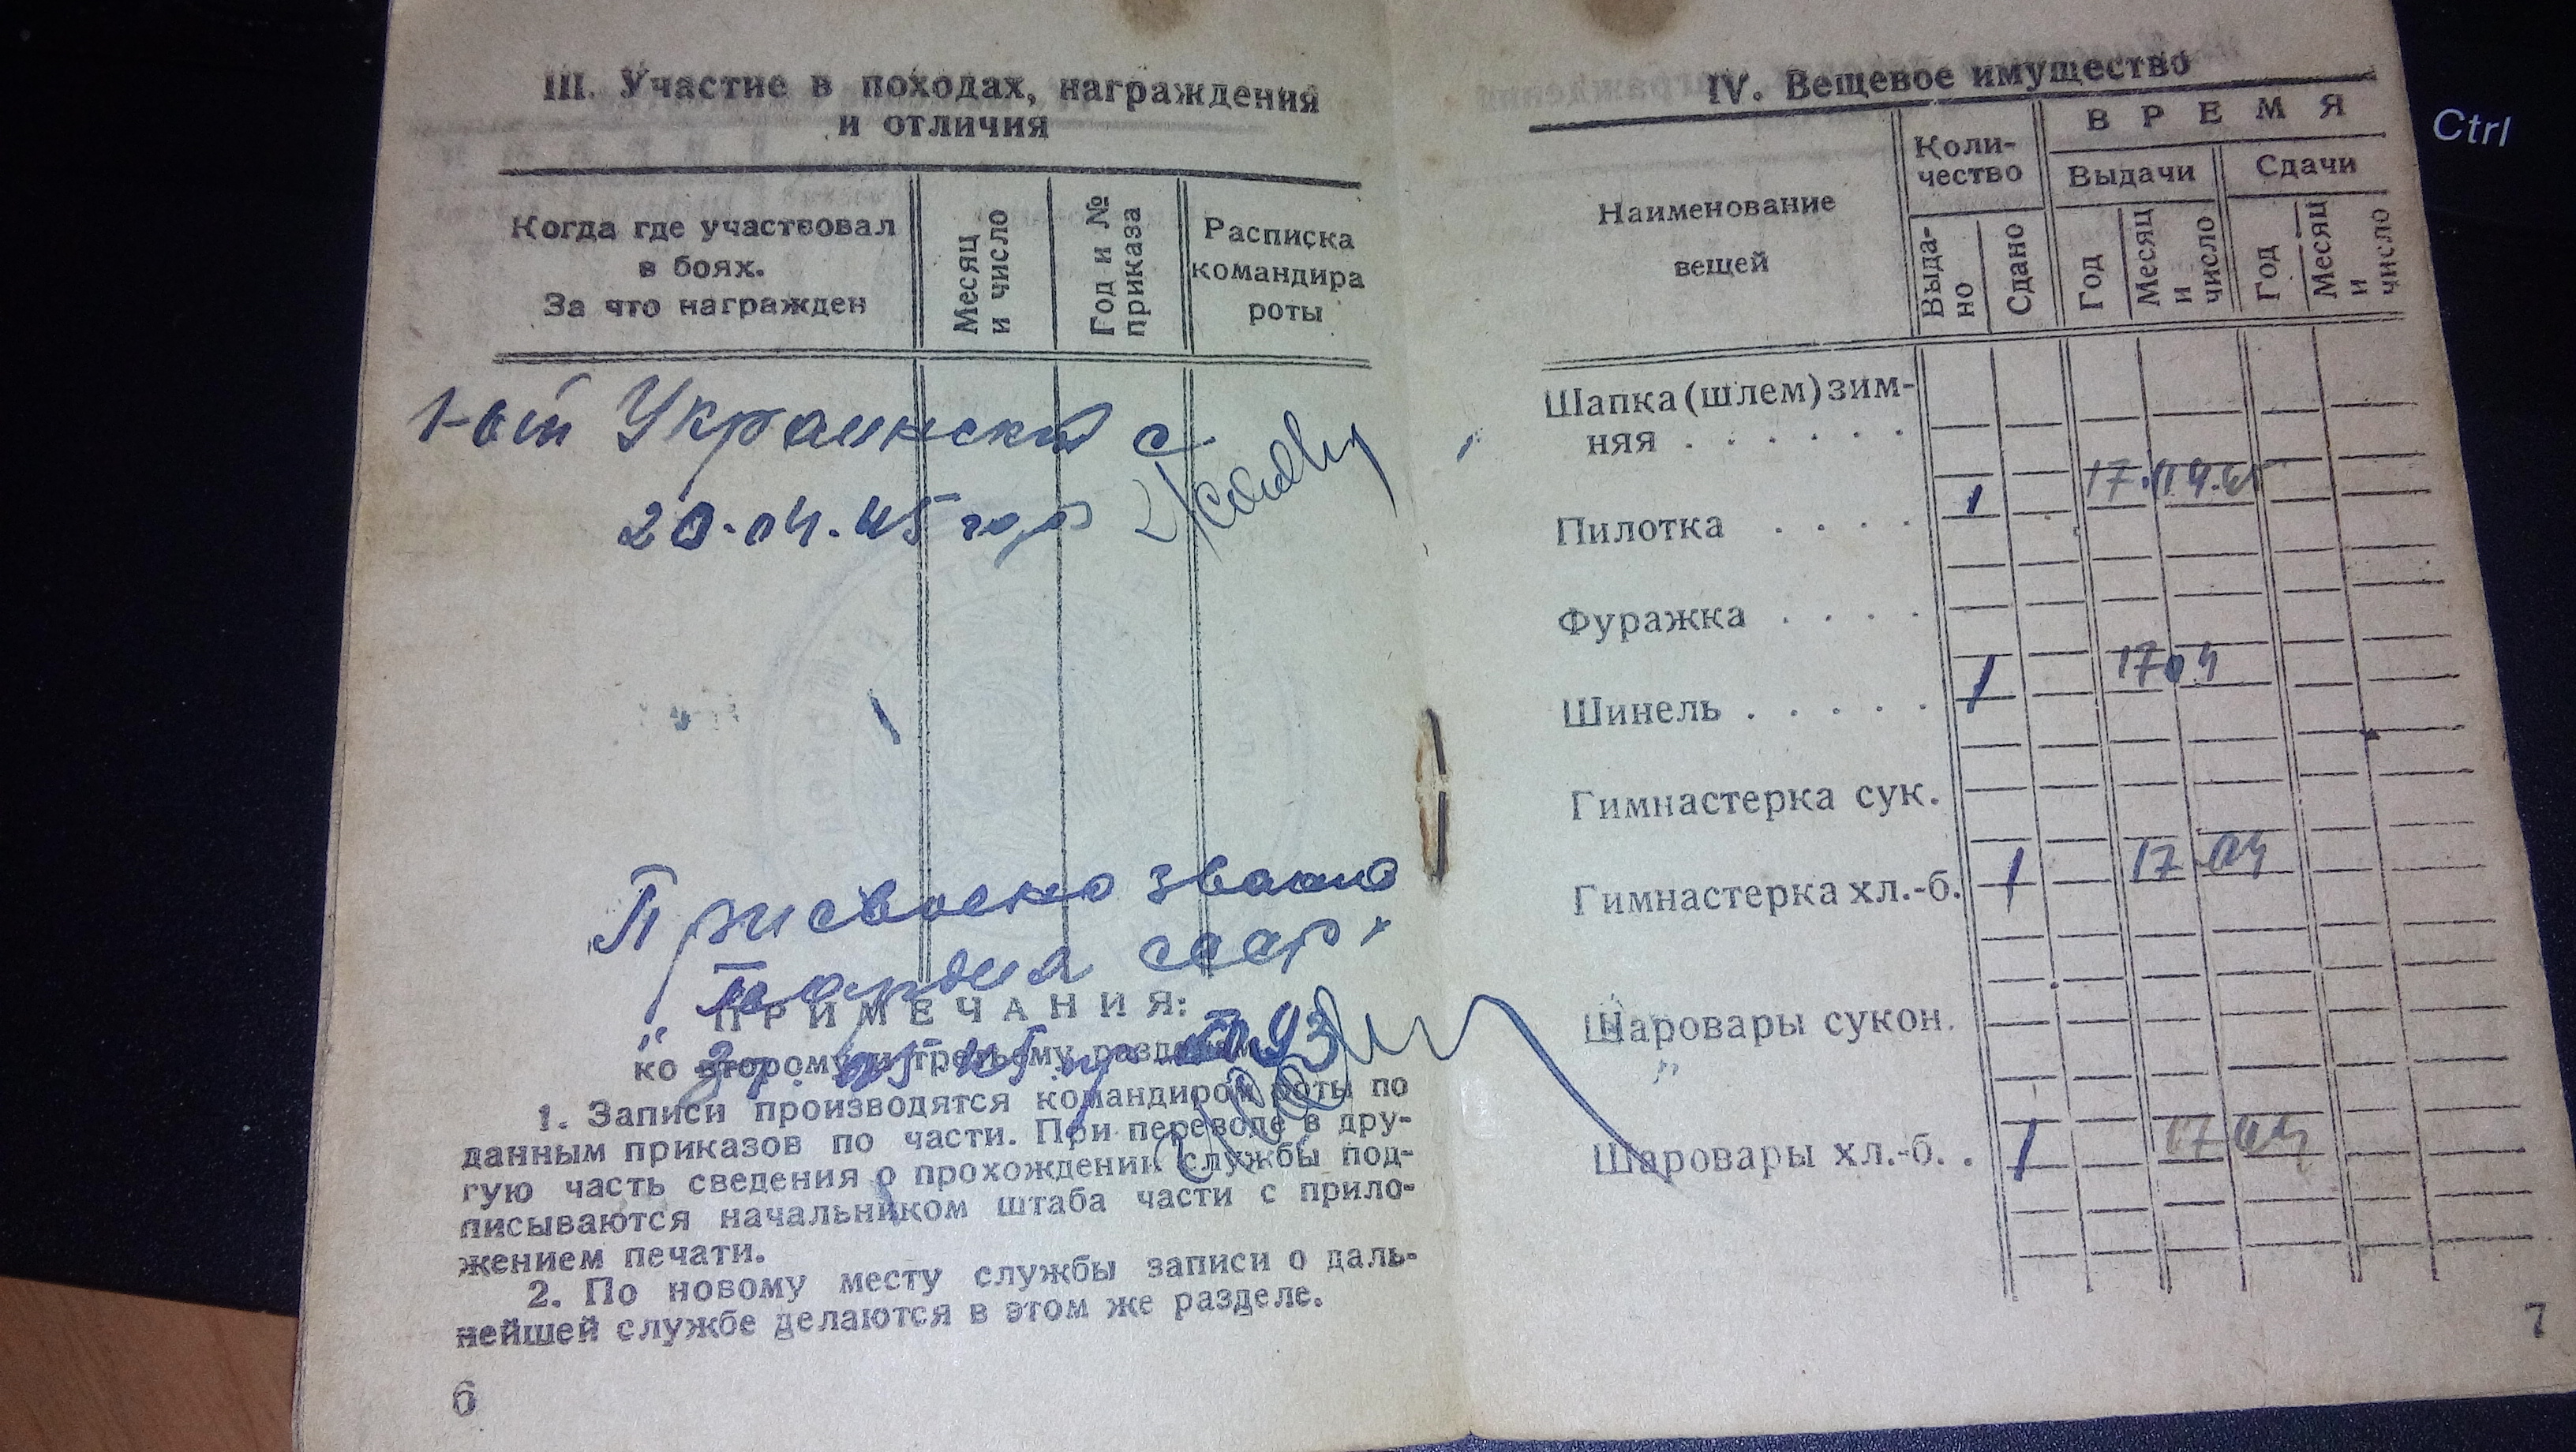 III. Участие в походах, награждения
и отличия
Когда где участвовал
в боях.
За что награжден
Месяц
и число
Год и №
приказа
Расписка
командира
роты
1-ой Украинский
20.04.45 год
Присвоено
Гвардия
ПРИМЕЧАНИЯ:
ко второму и третьему
1. Записи производятся командиром роты по
данным приказов по части. При переводе в дру-
гую часть сведения о прохождении службы под-
писываются начальником штаба части с прило-
жением печати.
2. По новому месту службы записи о даль-
нейшей службе делаются в этом же разделе.
6
IV. Вещевое имущество
Наименование
вещей
Коли-
чество
ВРЕМЯ
Выдачи
Сдачи
Выда-
но
Сдано
Год
Месяц
и
число
Год
Месяц
и
число
Шапка (шлем) зим-
няя . . . . . .
Пилотка . . . . 1 17.04.45
Фуражка . . . .
Шинель . . . . . 1 17 04
Гимнастерка сук.
Гимнастерка хл.-б. 1 17 04
Шаровары сукон.
"
Шаровары хл.-б. . 1 17 04
7
Ctrl